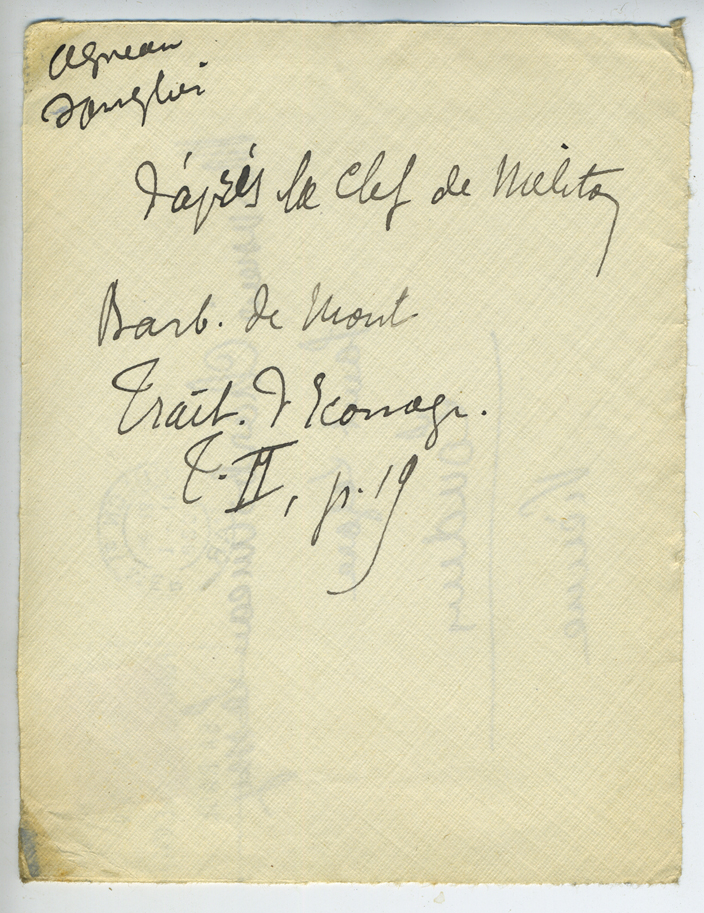 Agneau
Sanglier
d'après la Clef de Méliton
Barb. de Mont
Trait. d'Iconogr.
T. II, p. 19